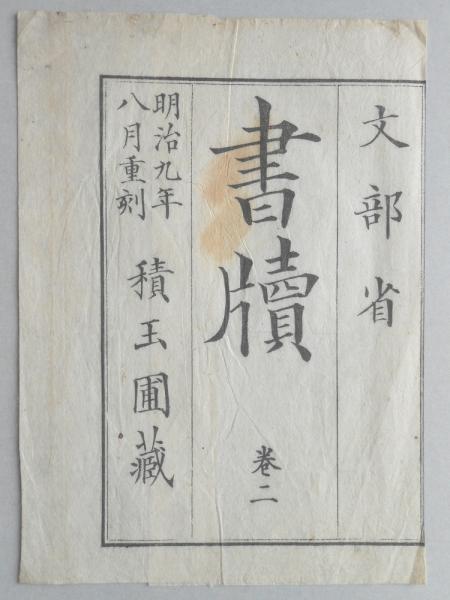 文部省
書牘
巻二
明治九年
八月重刻
積玉圃藏